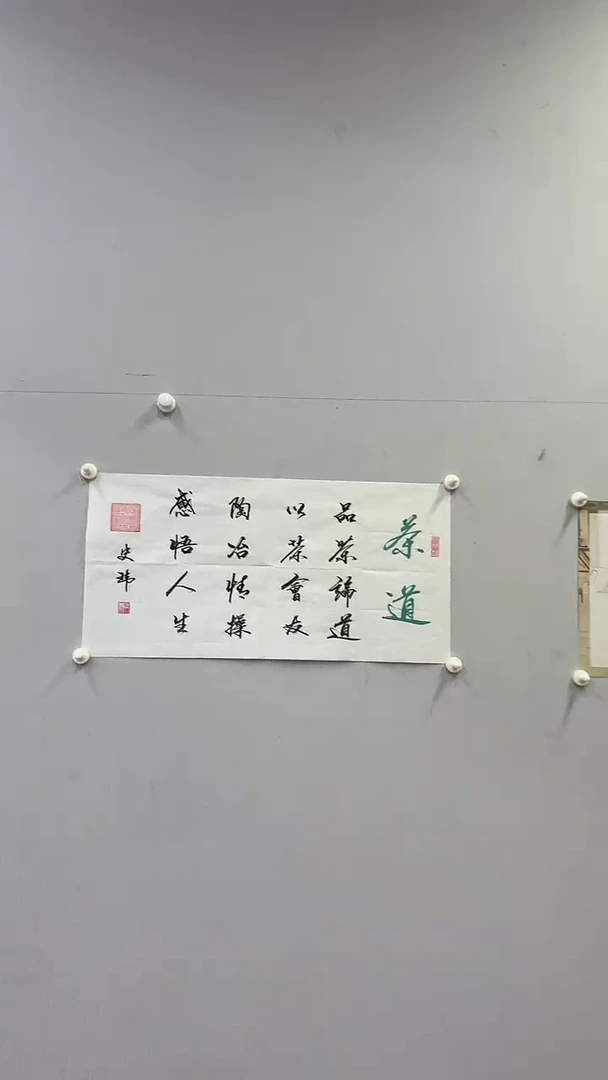 茶道
品茶論道
以茶會友
陶冶情操
感悟人生
史瑋